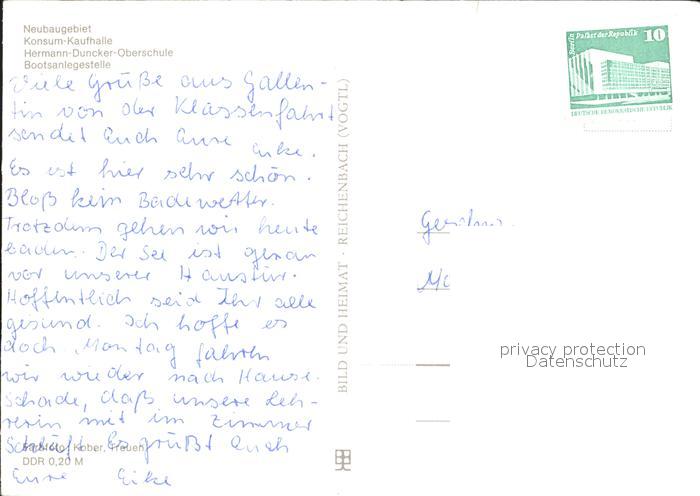 Neubaugebiet
Konsum-Kaufhalle
Hermann-Duncker-Oberschule
Bootsanlegestelle
Viele Grüße aus Gallen-
tin von der Klassenfahrt
sendet Euch Eure Eike.
Es ist hier sehr schön.
Bloß kein Badewetter.
Trotzdem gehen wir heute
baden. Der See ist genau
vor unserer Haustür.
Hoffentlich seid Ihr alle
gesund. Ich hoffe es
doch. Montag fahren
wir wieder nach Hause.
Schade, daß unsere Leh-
rerin mit im Zimmer
schläft. Es grüßt Euch
Eure Eike
Kober, Treuen
DDR 0,20 M
BILD UND HEIMAT · REICHENBACH (VOGTL)
Berlin Palast der Republik 10
DEUTSCHE DEMOKRATISCHE REPUBLIK
privacy protection
Datenschutz